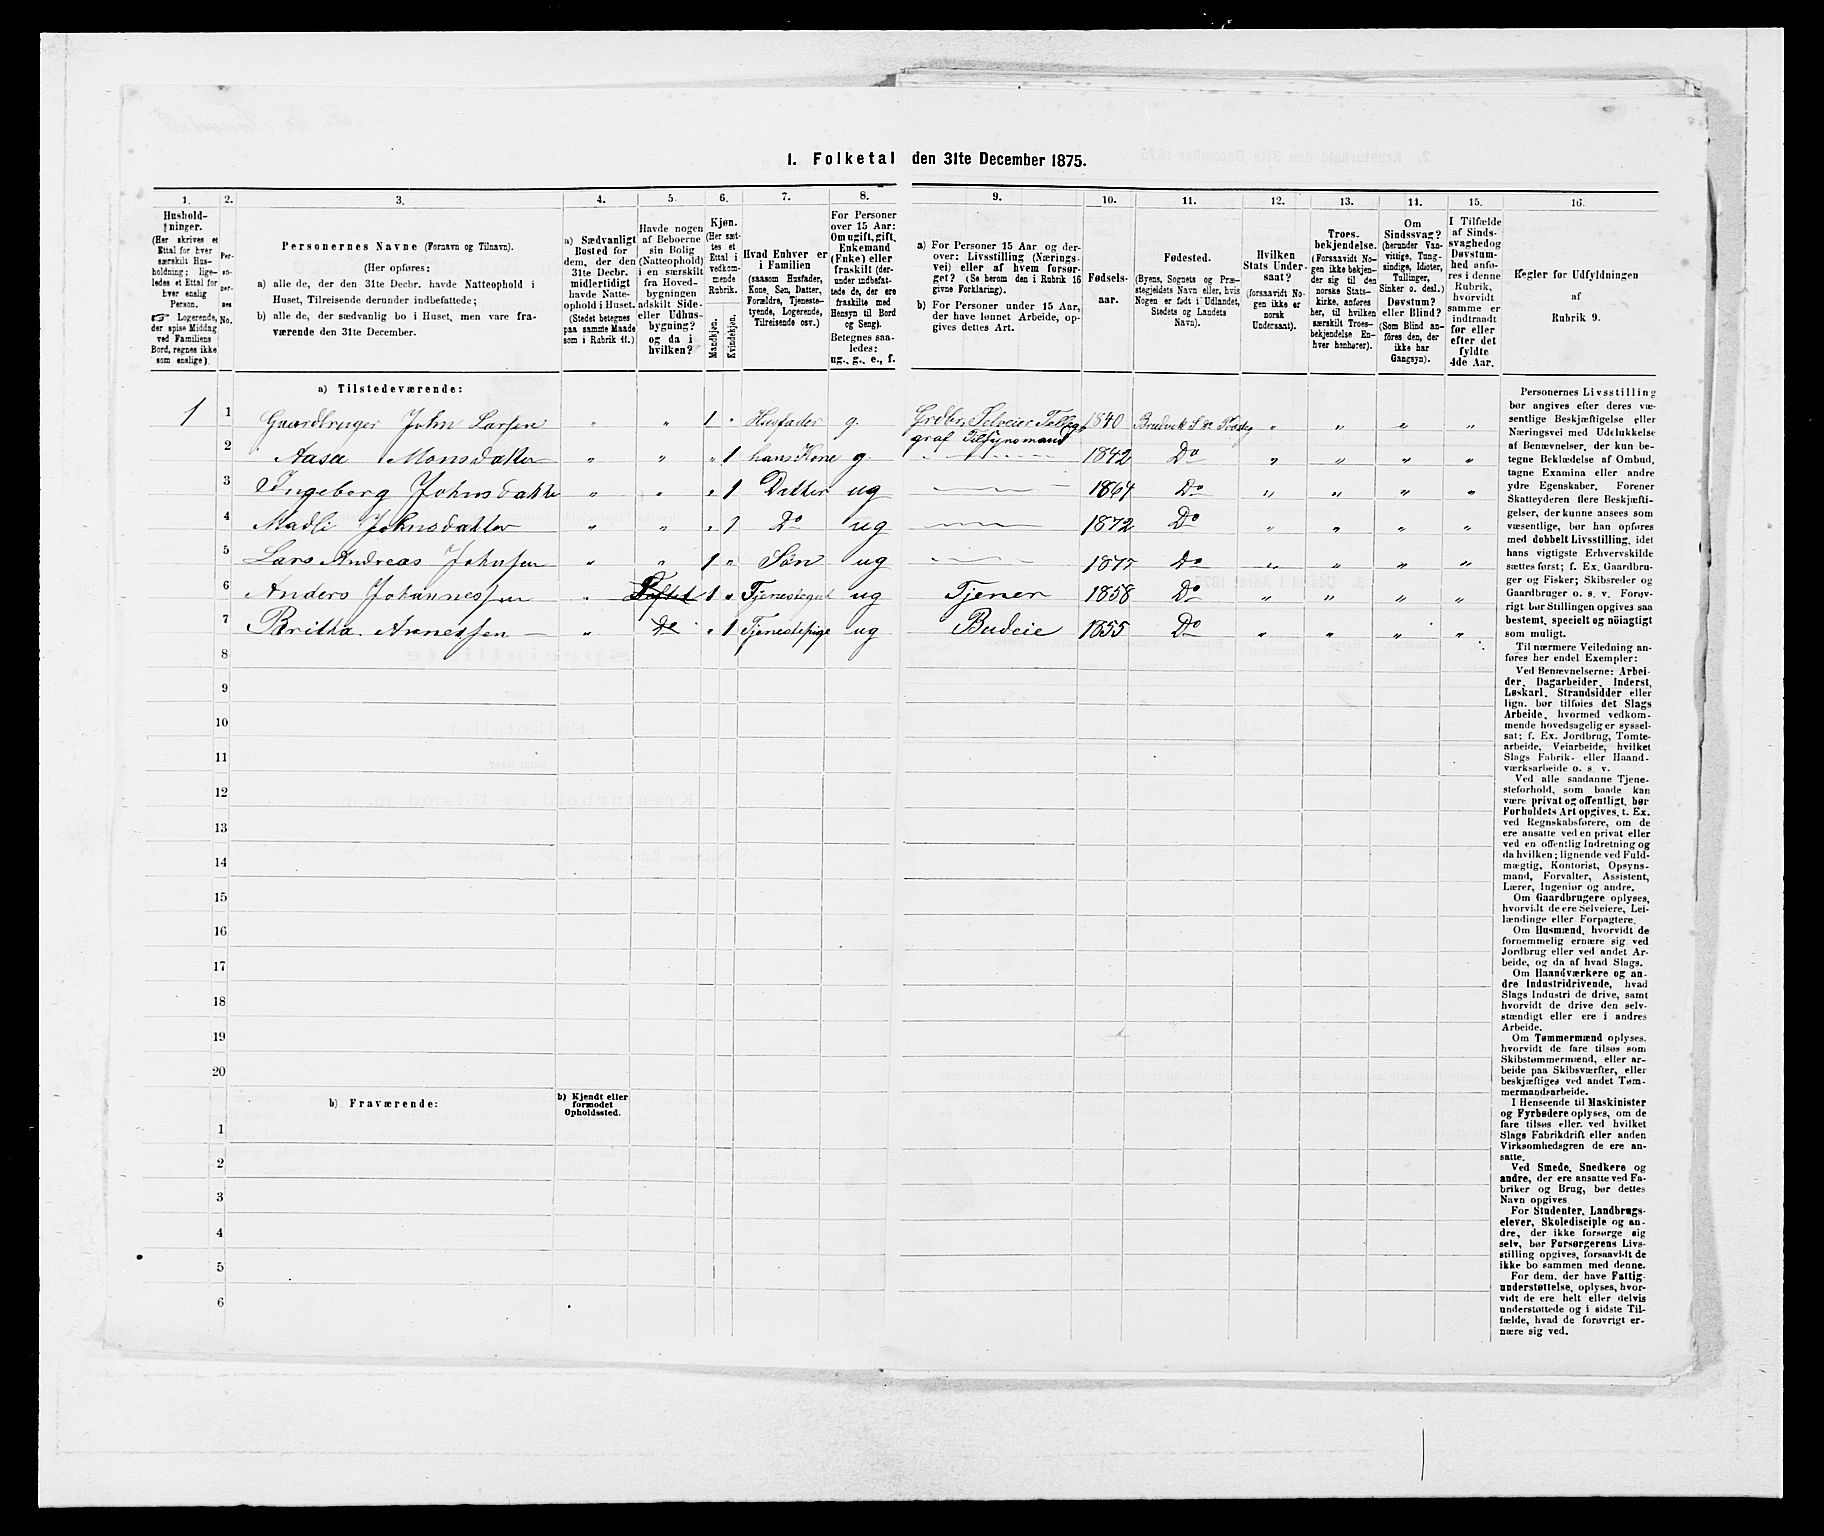 1. Folketal den 31te December 1875.
1.
2.
3.
4.
5.
6.
7.
8.
9.
10.
11.
12.
13.
14.
15.
16.
Hushold-
ninger.
(Her skrives et
Ettal for hver
særskilt Hus-
holdning; lige-
ledes et Ettal for
hver enslig
Person.
☞ Logerende,
der spise Middag
ved Familiens
Bord, regnes ikke
som enslige)
Per-
so-
ner-
nes
No.
Personernes Navne (Fornavn og Tilnavn).
(Her opføres:
a) alle de, der den 31te Decbr. havde Natteophold i
Huset, Tilreisende derunder indbefattede;
b) alle de, der sædvanlig bo i Huset, men vare fra-
værende den 31te December.
a) Sædvanligt
Bosted for
dem, der den
31te Decbr.
midlertidigt
havde Natte-
ophold i Huset.
(Stedet betegnes
paa samme Maade
som i Rubrik 11.)
Havde nogen
af Beboerne
sin Bolig
(Natteophold)
i en særskilt
fra Hoved-
bygningen
adskilt Side-
eller Udhus-
bygning?
og da i
hvilken?
Kjøn.
(Her sæt-
tes et
Ettal i
vedkom-
mende
Rubrik.
Mandkjøn.
Kvindekjøn.
Hvad Enhver er
i Familien
(saasom Husfader,
Kone, Søn, Datter,
Forældre, Tjeneste-
tyende, Logerende,
Tilreisende osv.)
For Personer
over 15 Aar:
Om ugift, gift,
Enkemand
(Enke) eller
fraskilt (der-
under indbefat-
tede de, der ere
fraskilte med
Hensyn til Bord
og Seng).
Betegnes saa-
ledes:
ug., g., e., f.
a) For Personer 15 Aar og der-
over: Livsstilling (Nærings-
vei) eller af hvem forsør-
get? (Se herom den i Rubrik 16
givne Forklaring).
b) For Personer under 15 Aar,
der have lønnet Arbeide, op-
gives dettes Art.
Fødsels-
aar.
Fødested.
(Byens, Sognets og Præ-
stegjeldets Navn eller, hvis
Nogen er født i Udlandet,
Stedets og Landets
Navn).
Hvilken
Stats Under-
saat?
(forsaavidt No-
gen ikke er
norsk
Undersaat).
Troes-
bekjendelse.
(Forsaavidt No-
gen ikke bekjen-
der sig til den
norske Stats-
kirke, anføres
her, til hvilken
særskilt Troes-
bekjendelse En-
hver henhører).
Om
Sindssvag?
(herunder Van-
vittige, Tung-
sindige, Idioter,
Tullinger,
Sinker o. desl.)
Døvstum?
eller Blind?
(Som Blind an-
føres den, der
ikke har
Gangsyn).
I Tilfælde
af Sinds-
svaghed og
Døvstum-
hed anfø-
res i denne
Rubrik,
hvorvidt
samme er
indtraadt
før eller
efter det
fyldte
4de Aar.
Regler for Udfyldningen
af
Rubrik 9.
a) Tilstedeværende:
1 1 Gaardbruger John Larsen " " 1 " Husfader g. Grdbr. Selveier Telegraf Tilsynsmand 1840 " " " "
2 Aasa Monsdatter " " " 1 hans Kone g 1842 Do " " " "
3 Ingeborg Johnsdatter " " " 1 Datter ug 1864 Do " " " "
4 Madli Johnsdatter " " " 1 Do ug 1872 Do " " " "
5 Lars Andreas Johnsen " " 1 " Søn ug Do " " " "
6 Anders Johannessen " 1 " Tjenestegut ug Tjener 1858 Do " " " "
7 Britha Arnessen " Do " 1 Tjenestepige ug Budeie 1855 Do " " " "
8
9
10
11
12
13
14
15
16
17
18
19
20
b) Fraværende:
b) Kjendt eller
formodet
Opholdssted.
1
2
3
4
5
6
Personernes Livsstilling
bør angives efter deres væ-
sentlige Beskjæftigelse eller
Næringsvei med Udelukkelse
af Benævnelser, der kun be-
tegne Beklædelse af Ombud,
tagne Examina eller andre
ydre Egenskaber. Forener
Skatteyderen flere Beskjæfti-
gelser, der kunne ansees som
væsentlige, bør han opføres
med dobbelt Livsstilling, idet
hans vigtigste Erhvervskilde
sættes først; f. Ex. Gaardbru-
ger og Fisker; Skibsreder og
Gaardbruger o. s. v. Forøv-
rigt bør Stillingen opgives saa
bestemt, specielt og nöiagtigt
som muligt.
Til nærmere Veiledning an-
føres her endel Exempler:
Ved Benævnelserne: Arbei-
der, Dagarbeider, Inderst,
Løskarl, Strandsidder eller
lign. bør tilføies det Slags
Arbeide, hvormed vedkom-
mende hovedsagelig er syssel-
sat; f. Ex. Jordbrug, Tomte-
arbeide, Veiarbeide, hvilket
Slags Fabrik- eller Haand-
værksarbeide o. s. v.
Ved alle saadanne Tjene-
steforhold, som baade kan
være privat og offentligt, bør
Forholdets Art opgives, t. Ex.
ved Regnskabsførere, om de
ere ansatte ved en privat eller
ved en offentlig Indretning og
da hvilken; lignende ved Fuld-
mægtig, Kontorist, Opsyns-
mand, Forvalter, Assistent,
Lærer, Ingeniør og andre.
Om Gaardbrugere oplyses,
hvorvidt de ere Selveiere, Lei-
lændinge eller Forpagtere.
Om Husmænd, hvorvidt de
fornemmelig ernære sig ved
Jordbrug eller ved andet Ar-
beide, og da af hvad Slags.
Om Haandværkere og an-
dre Industridrivende, hvad
Slags Industri de drive, samt
hvorvidt de drive den selv-
stændigt eller ere i andres
Arbeide.
Om Tømmermænd oplyses,
hvorvidt de fare tilsøs som
Skibstømmermænd, eller ar-
beide paa Skibsværfter, eller
beskjæftiges ved andet Tøm-
mermandsarbeide.
I Henseende til Maskinister
og Fyrbødere oplyses, om de
fare tilsøs eller ved hvilket
Slags Fabrikdrift eller anden
Virksomhedsgren de ere an-
satte.
Ved Smede, Snedkere og
andre, der ere ansatte ved Fa-
briker og Brug, bør dettes
Navn opgives
For Studenter, Landbrugs-
elever, Skoledisciple og an-
dre, der ikke forsørge sig
selv, bør Forsørgerens Livs-
stilling opgives, forsaavidt de
ikke bo sammen med denne.
For dem, der have Fattig-
understøttelse, oplyses, hvor-
vidt de ere helt eller delvis
understøttede og i sidste Til-
fælde, hvad de forøvrigt er-
nære sig ved.